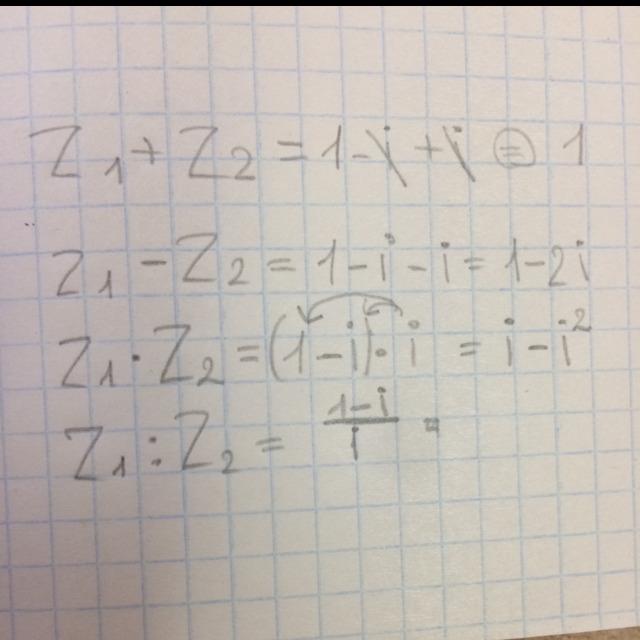 Z₁+Z₂=1-i+i=1
Z₁-Z₂=1-i-i=1-2i
Z₁·Z₂=(1-i)·i=i-i²
Z₁:Z₂=\frac{1-i}{i}=